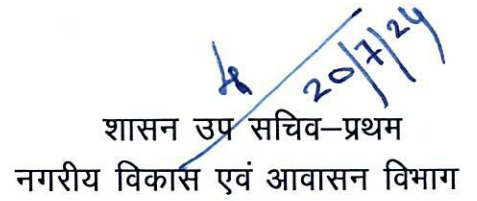 20/7/24
शासन उप सचिव–प्रथम
नगरीय विकास एवं आवासन विभाग